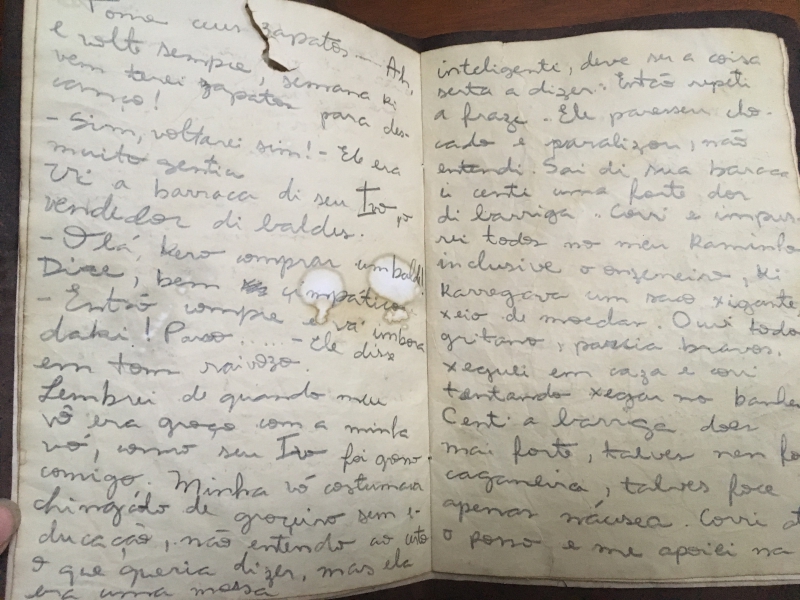 Tome seus zapatos... Ah,
e volte sempre, semana ki
vem terei zapatos para des-
comço!
- Sim, voltarei sim! - Ele era
muito gentiu
Vi a barraca di seu Ivo, o
vendedor di baldes.
- Olá, kero comprar um baldi!
Dice, bem cimpático
- Entao compre e vá imbora
daki! Paro..... - Ele dise
em tom raivozo.
Lembrei de quando meu
vô era groço com a minha
vó, como seu Ivo foi goso
comigo. Minha vó costumava
chingálo de groçeiro sem e-
ducação, não entendo ao certo
o que queria dizer, mas ela
era uma mossa
inteligenti, deve ser a coisa
serta a dizer. Então repeti
a fraze. Ele pareseu cho-
cado e paralizou, não
entendi. Sai di sua baraca
i centi uma forte dor
di barriga. Corri e impur-
rei todos no meu kaminho
inclusive o onzeneiro, ki
karregava um saco xigante
xeio de moedas. Ouvi todos
gritano, parecia bravos.
xeguei em caza e corri
tentando xegar no banhe
Cent a barriga doer
mais forte, talves nem fo
caganeira, talves foce
apenas náusea. Corri at
o posso e me apoiei na